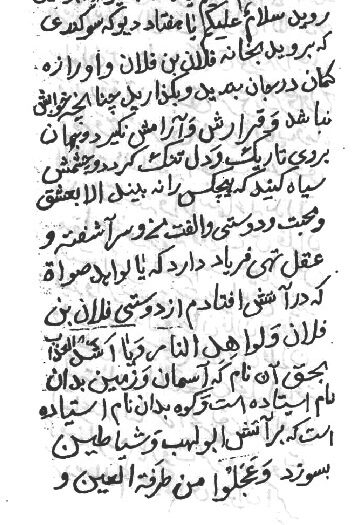 روید سلام علیکم یا هفتاد دیو که سوکندی
که بروید بخانه فلان بن فلان و اورا زه
کمان در میان بندید و بگذارید چنانچه خوابش
نباشد و قرارش و آرامش نگیرد و جهان
بروی تاریک و دل تنک کردد و چشمش
سیاه کنید که هیچکس را نه بیند الا بعشق
و محبت و دوستی و الفت من و سر آشفته و
عقل تهی فریاد دارد که یا لواهد
که در آتش افتادم از دوستی فلان بن
فلان و لواهل النار و یا اشد العذاب
بحق آن نام که آسمان و زمین بدان
نام ایستاده است و کوه بدان نام استیاده
است که بر آتش ابولهب و شیاطین
بسوزد وَعَجِّلُوا من طرفة العین و